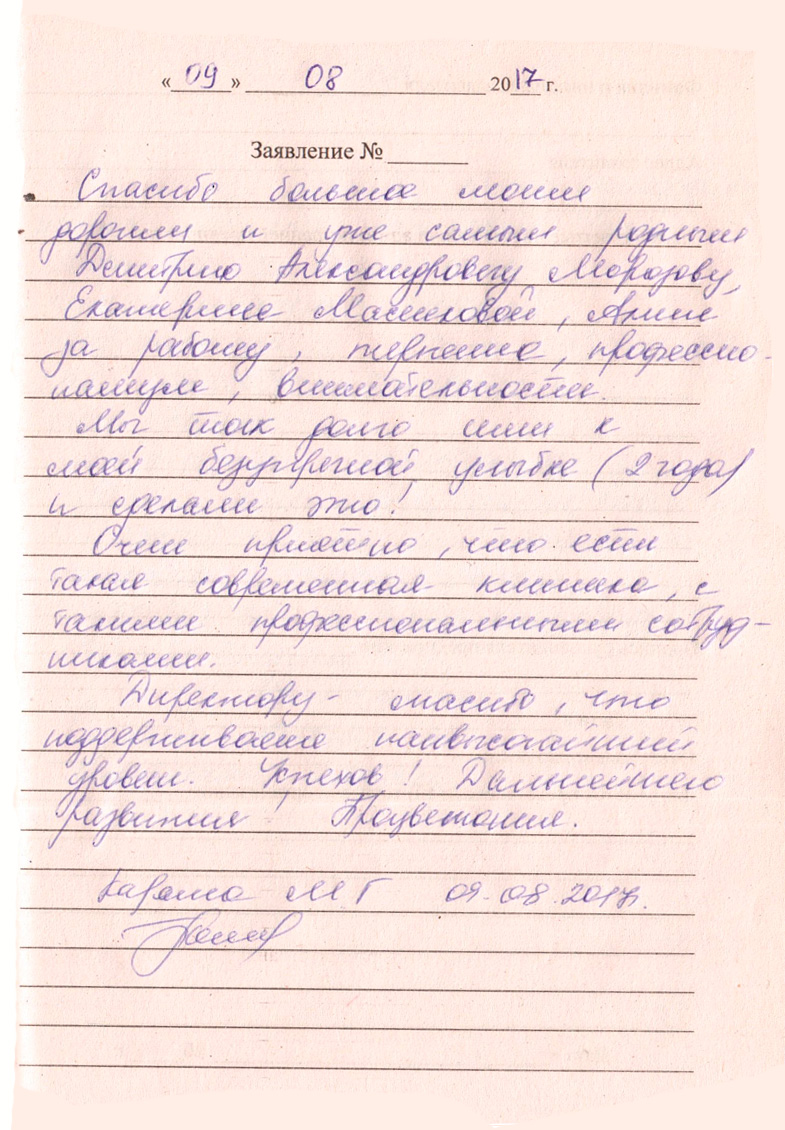 « 09 » 08 2017 г.
Заявление №
Спасибо большое моим
дорогим и уже самым родным
Дмитрию Александровичу Морозову,
Екатерине Масликовой, Анне
за работу, терпение, профессио-
нализм, внимательность.
Мы так долго шли к
моей безупречной улыбке (2 года)
и сделали это!
Очень приятно, что есть
такая современная клиника, с
такими профессиональными сотруд-
никами.
Директору - спасибо, что
поддерживаете наивысочайший
уровень. Успехов! Дальнейшего
развития! Процветания.
М Г 09.08.2017г.